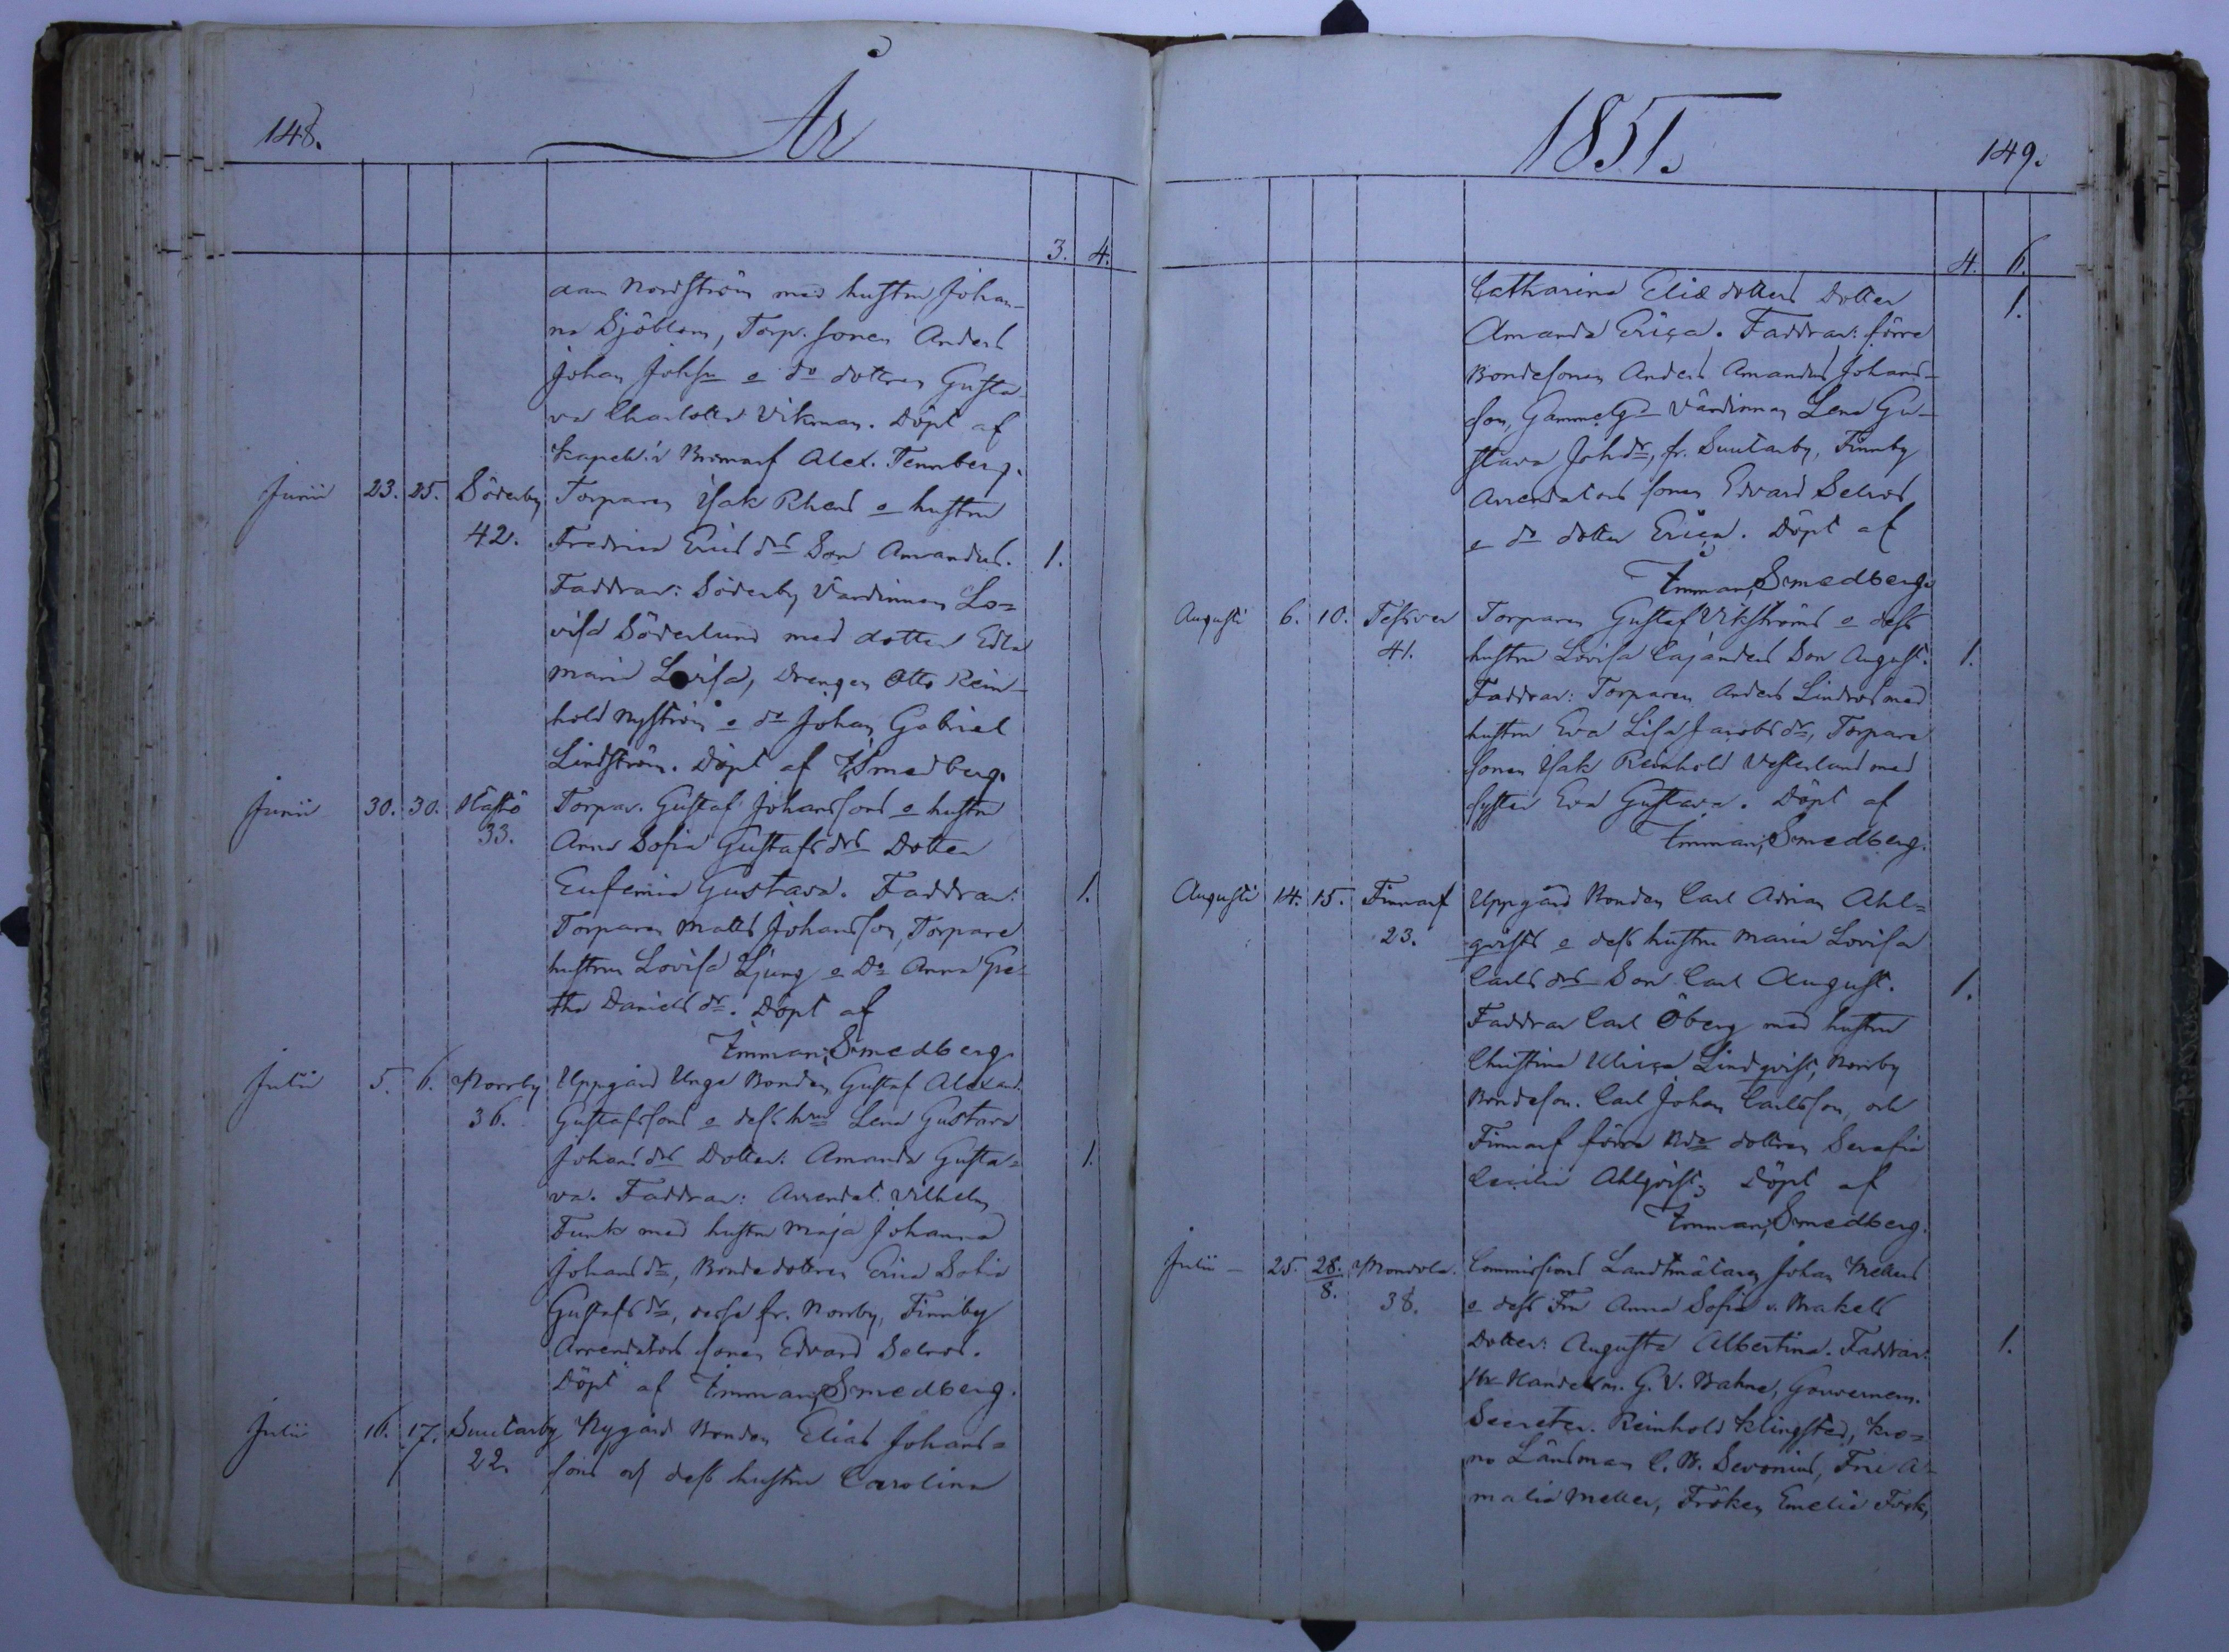 148.
År
3. 4.
dam Nordström med hustru Johan-
na Sjöblom, Torp. sonen Anders
Johan Johss. o do dottren Gusta-
va Charlotta Vikman. Döpt af
Kapell. i Bromarf Alex. Tennberg.
Junii 23. 25. Söderby Torparen Isak Rhens o hustru
42. Fredrica Erics drs Son Amandus. 1.
Faddrar: Söderby Värdinnan Lo=
visa Söderlund med dotter Edla
Maria Lovisa, Drengen Otto Rein-
hold Nyström o do Johan Gabriel
Lindström. Döpt af Smedberg.
Junii 30. 30. 33. Torpar. Gustaf Johanssons o hustru
Anna Sofia Gustafs drs Dotter
Eufemia Gustava. Faddrar: 1.
Torparen Matts Johansson, Torpare
hustrun Lovisa Ljung o Do Anna Gre-
tha Daniels dr. Döpt af
Imman. Smedberg.
Julii 5. 6. Norrby Uppgård Unga Bonden Gustaf Alexand.
36. Gustafssons o dess hru Lena Gustava
Johans drs Dotter: Amanda Gusta= 1.
va. Faddrar: Arrendat. Vilhelm
Funk med hustru Maja Johanna
Johans dr, Bondedottren Erica Sofia
Gustafs dr, dessa fr. Norrby, Finnby
Arrendators sonen Edvard Selroos.
Döpt af Imman. Smedberg.
Julii 16. 17. Suutarby Nygård Bonden Elias Johans=
22. sons och dess hustru Carolina
1851.
149.
4. 6.
Catharina Eliæ dotters Dotter 1.
Amanda Erica. Faddrar: förre
Bondesonen Anders Amandus Johans-
son, Gammelgd Värdinnan Lena Gu-
stava Johdr, fr. Suutarby, Finnby
Arrendators sonen Edvard Selroos
o do dotter Erica. Döpt af
Imman. Smedberg.
Augusti 6. 10. Tessver Torparen Gustaf Vikströms o dess
41. hustru Lovisa Cajanders Son August. 1.
Faddrar: Torparen Anders Lindroos med
hustru Eva Lisa Jacobs dr, Torpare
sonen Isak Reinhold Vesterlund med
syster Eva Gustava. Döpt af
Imman. Smedberg.
Augusti 14. 15. Finnarf Uppgård Bonden Carl Adrian Ahl=
23. qvists o dess hustru Maria Lovisa
Carls drs Son Carl August. 1.
Faddrar Carl Öberg med hustru
Christina Ulrica Lindqvist, Norrby
Bondeson. Carl Johan Carlsson, och
Finnarf förra Bde dottren Serafia
Cecilia Ahlqvist. Döpt af
Imman. Smedberg.
Julii - 25. 28. 8. Mondola. Commissions Landtmätaren Johan Mellers
38. o dess Fru Anna Sofia v. Brakels
Dotter: Augusta Albertina. Faddrar: 1.
Hr Handelsm. G. V. Bahne, Gouvernem.
Secreter. Reinhold Klingsted, Kro=
no Länsman C. B. Sevonius, Fru A-
malia Meller, Fröken Emelie Fock,